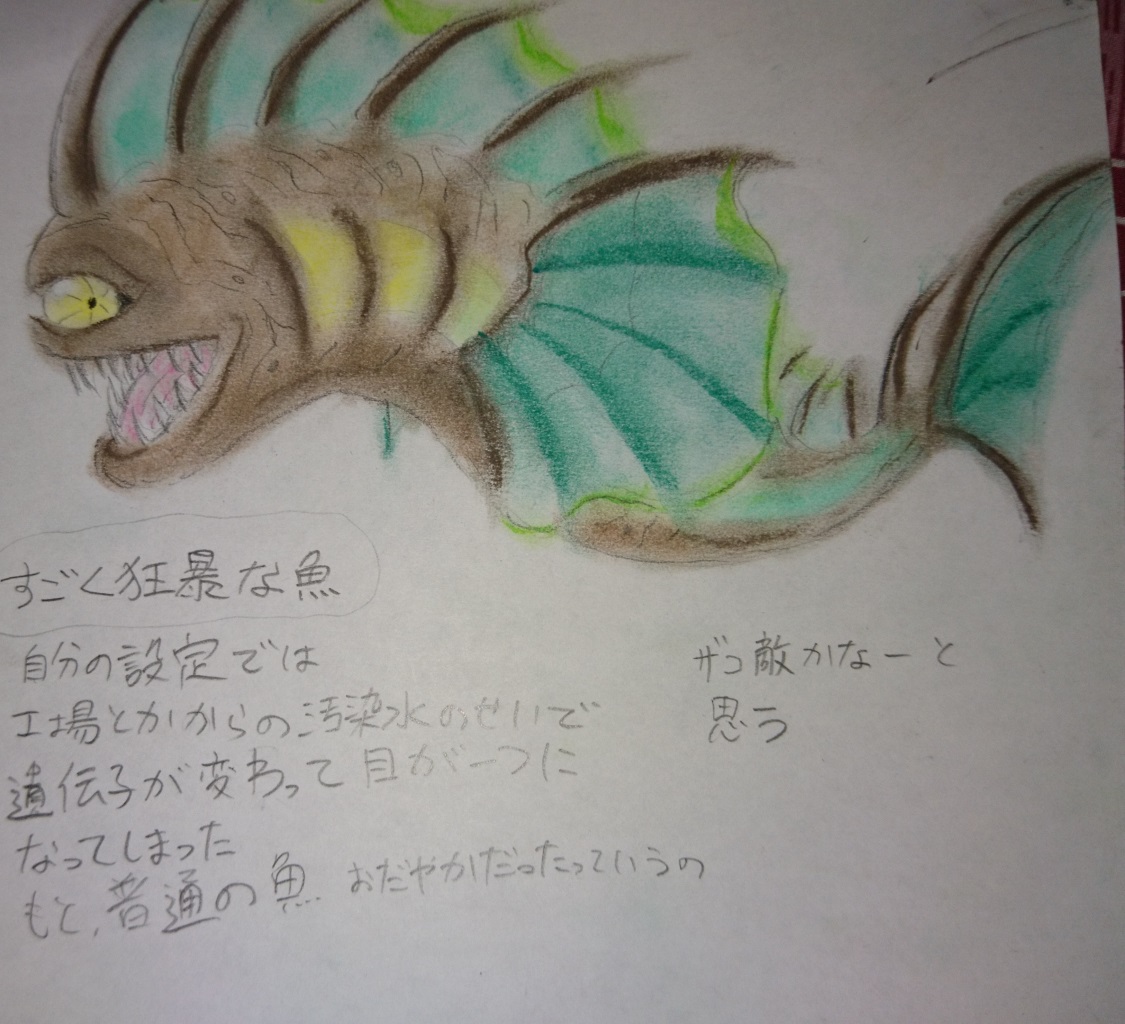 すごく狂暴な魚
自分の設定では
工場とかからの汚染水のせいで
遺伝子が変わって目が一つに
なってしまった
もと、普通の魚 おだやかだったっていうの
ザコ敵かなーと
思う